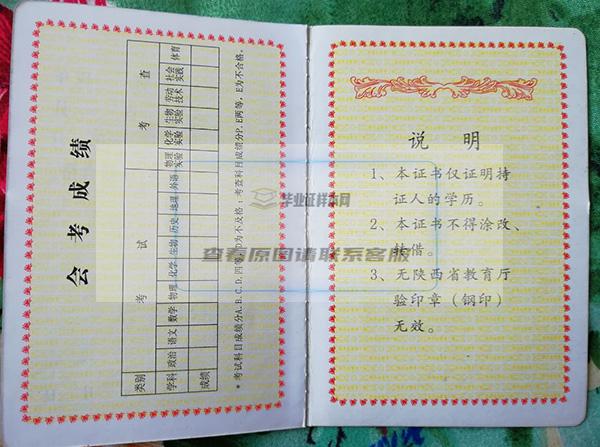 会考成绩
类别 考试 考查
学科 政治 语文 数学 物理 化学 生物 历史 地理 外语 物理实验 化学实验 生物实验 劳动技术 社会实践 体育
成绩
*考试科目成绩分A、B、C、D,四等,D为不合格；考查科目成绩分P、E两等，E为不合格。
说 明
1、本证书仅证明持
证人的学历。
2、本证书不得涂改、
转借。
3、无陕西省教育厅
验印章（钢印）
无效。
毕业证样本网
查看原图请联系客服